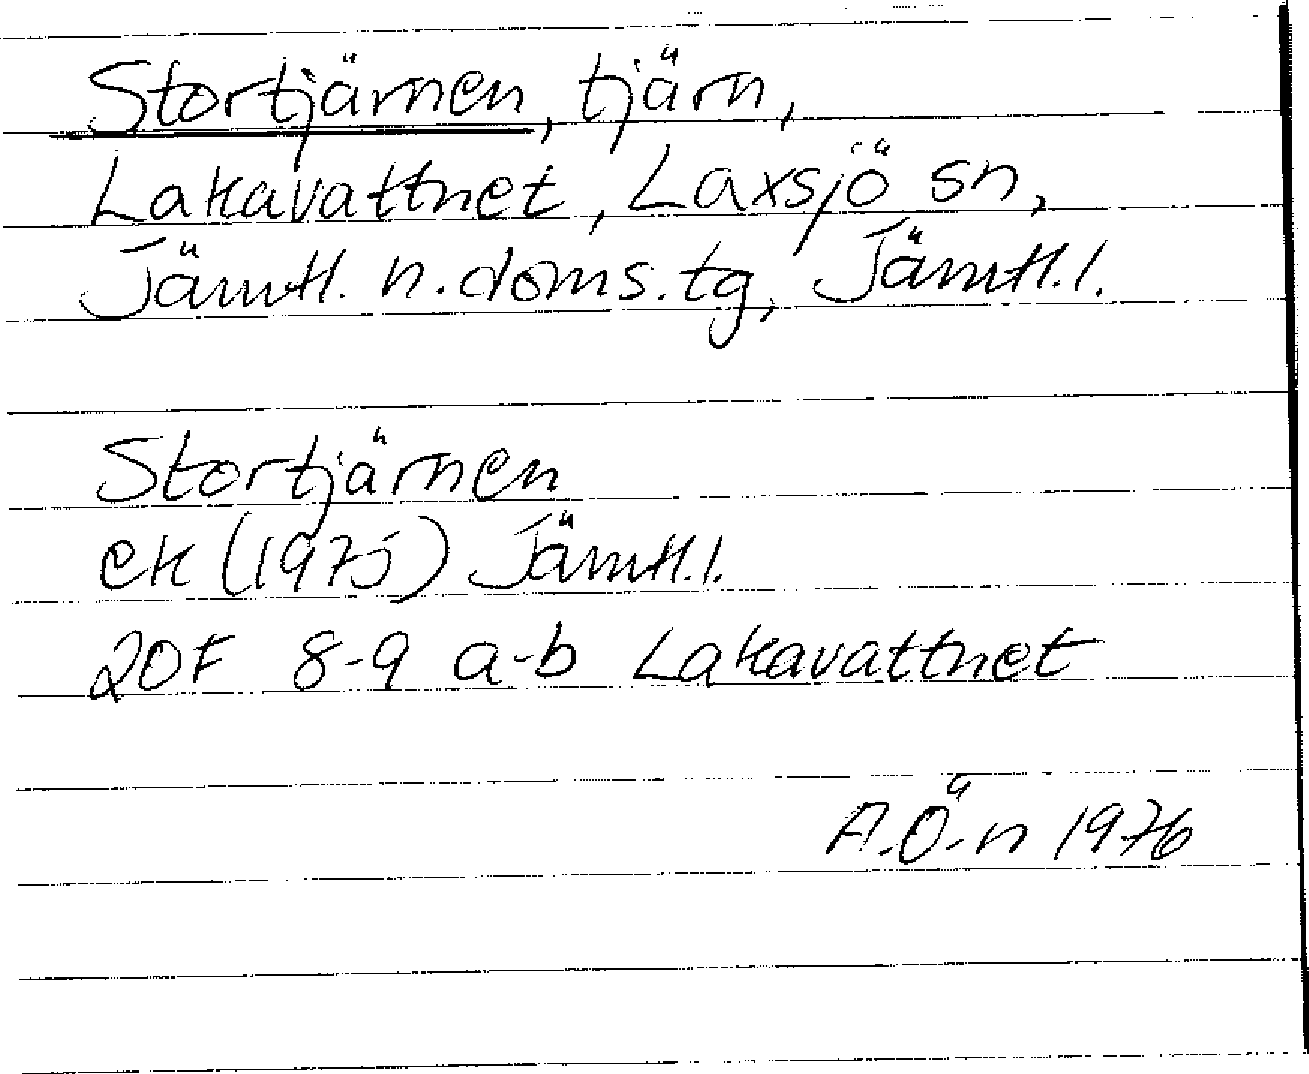 Stortjärnen, tjärn,
Lakavattnet, Laxsjö sn,
Jämtl. n. doms. tg, Jämtl. l.
Stortjärnen
ek (1975) Jämtl. l.
20F 8-9 a-b Lakavattnet
A.Ö-n 1976